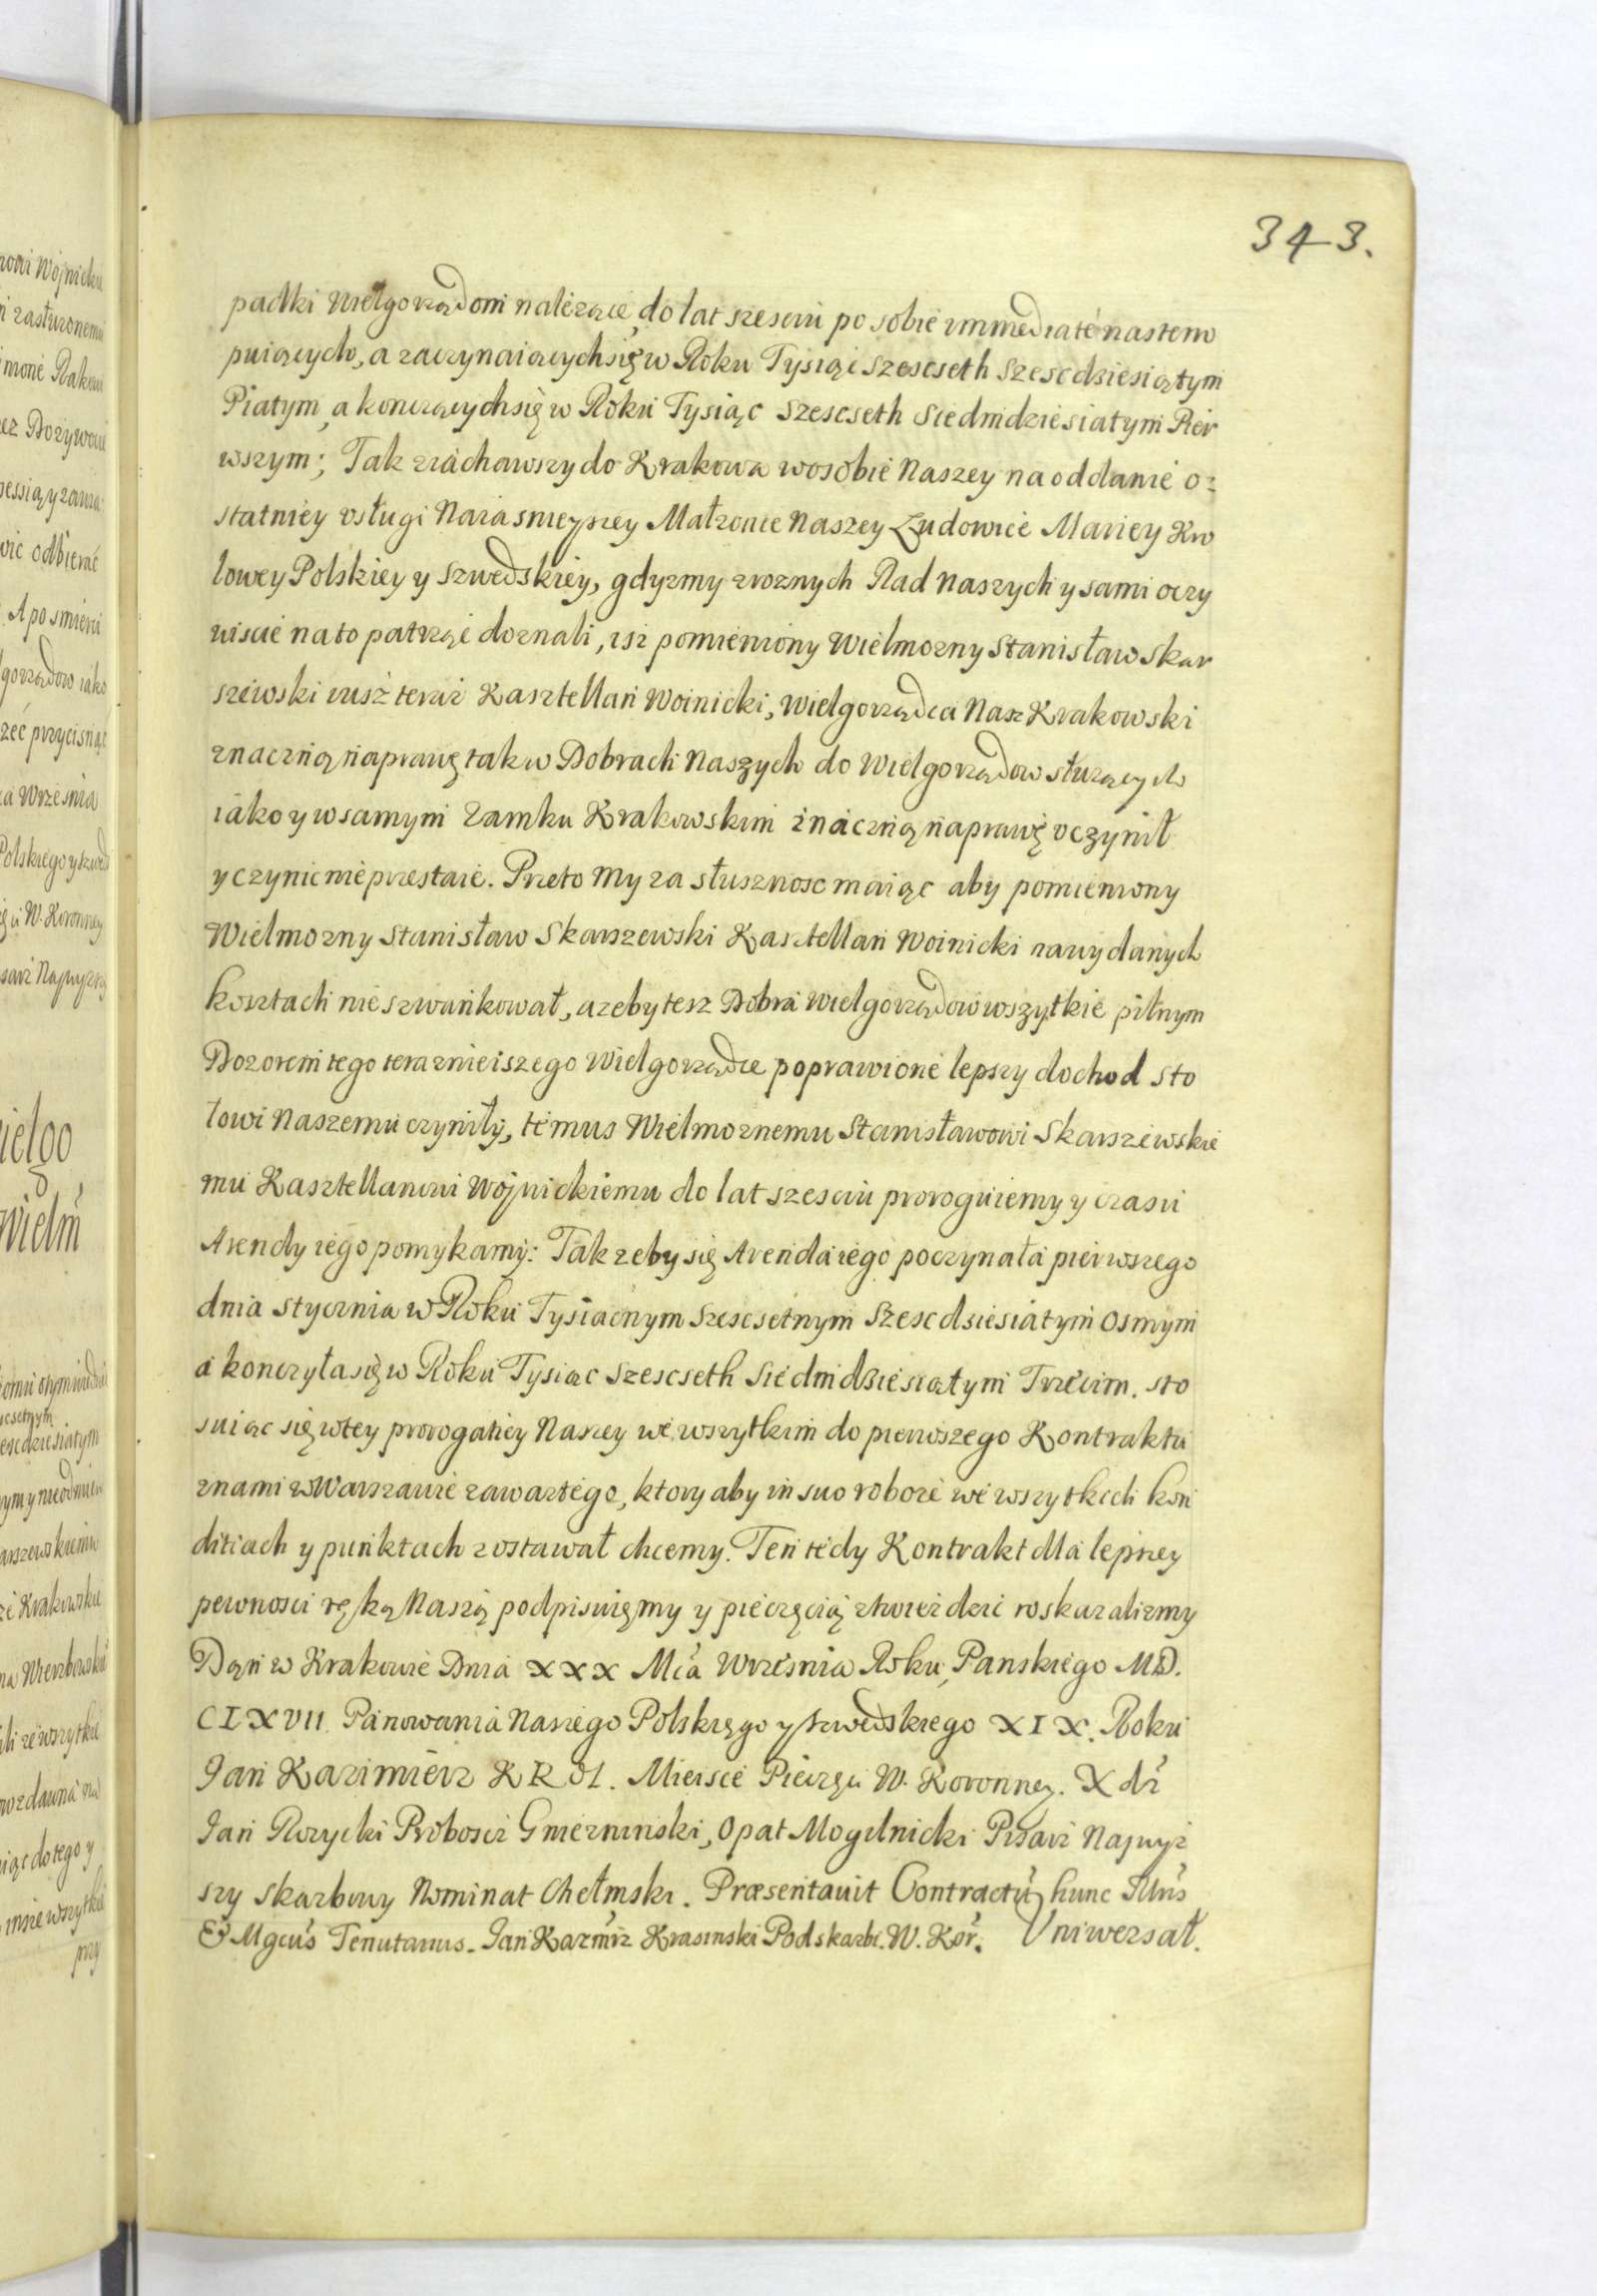 343.
padki Wielgorządom należące, do lat szesciu po sobie immediate nastempo
puiących, a zaczynaiących się w Roku Tysiąc szescseth szescdziesiątym
Piatym, a konczących się w Roku Tysiąc Szescseth Siedmdziesiatym Pier
wszym; Tak ziachawszy do Krakowa w osobie Naszey na oddanie o=
statniey vsługi Naiasnieyszey Małzonce Naszey Ludowice Mariey Kro
lowey Polskiey y Szwedskiey, gdyzmy z roznych Rad naszych y sami oczy
wiscie na to patrząc doznali, isz pomieniony Wielmozny Stanisław Skar
szewski iusz teraz Kasztellan Woinicki, Wielgorządca Nasz Krakowski
znaczną naprawę tak w Dobrach Naszych do Wielgorządow słuzących
iako y w samym Zamku Krakowskim znaczną naprawę vczynił
y czynic nie przestaie. Przeto My za słusznosc maiąc aby pomieniony
Wielmozny Stanisław Skarszewski Kasztellan Woinicki na wydanych
kosztach nie szwankował, a zeby tesz Dobra Wielgorządow wszytkie pilnym
Dozorem tego teraznieiszego Wielgorządce poprawione lepszy dochod sto
łowi Naszemu czyniły, temus Wielmoznemu Stanisławowi Skarszewskie
mu Kasztellanowi Wojnickiemu do lat szesciu proroguiemy y czasu
Arendy iego pomykamy: Tak zeby się Arenda iego poczynała pierwszego
dnia stycznia w Roku Tysiacnym szescsetnym szescdsiesiatym osmym
a konczyła się w Roku Tysiac szescseth Siedmdziesiątym Trzecim. sto
suiąc się w tey prorogatiey Naszey we wszytkim do pierwszego Kontraktu
z nami w Warszawie zawartego, ktory aby in suo robore we wszytkich kon
ditiach y punktach zostawał chcemy. Ten tedy Kontrakt dla lepszey
pewnosci ręką Naszą podpisuięmy y pieczęcią ztwierdzic roskazalizmy
Dąn w Krakowie Dnia XXX Mca Wrzesnia Roku Panskiego MD.
CLXVII. Panowania Naszego Polskięgo y szwedskiego XIX. Roku
Jan Kazimierz KROL. Mieisce Pieczęci W. Koronney. X dz
Jan Rozycki Probosz Gnieznınski, Opat Mogilnicki Pisarz Najwyż
szy skarbowy Nominat Chełmski. Præsentavit Contractū hunc Illrıs
& Mgcus Tenutarius. Jan Kazmirz Krasinski Podskarbi. W. Kor. Vniwersał.